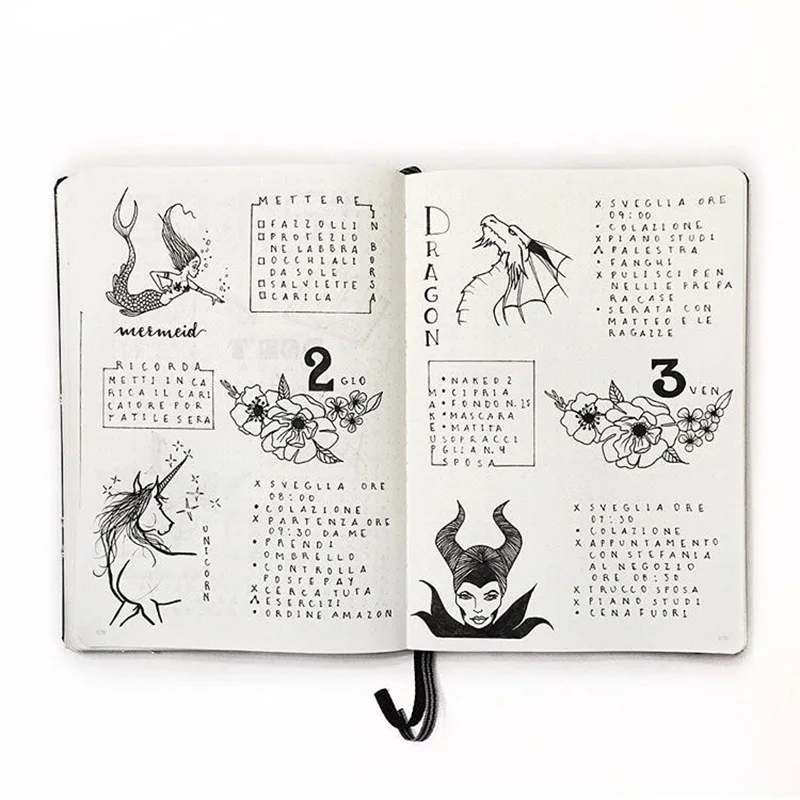 METTERE
IN BORSA
FAZZOLLI
PROTEZIO
NE LABBRA
OCCHIALI
DA SOLE
SALVIETTE
CARICA
mermeid
RICORDA
METTI IN CA
RICA IL CARI
CATORE POR
TATILE SERA
2 GIO
UNICORN
x SVEGLIA ORE
08:00
• COLAZIONE
x PARTENZA ORE
09:30 DA ME
• PRENDI
OMBRELLO
• CONTROLLA
POSTEPAY
x CERCA TUTA
ESERCIZI
• ORDINE AMAZON
DRAGON
x SVEGLIA ORE
09:00
• COLAZIONE
x PIANO STUDI
PALESTRA
• FANGHI
x PULISCI PEN
NELLI E PREPA
RA CASE
• SERATA CON
MATTEO E LE
RAGAZZE
MAKEUP
• NAKED 2
• CIPRIA
• FONDO N. 25
• MASCARA
• MATITA
SOPRACCI
GLIA N. 4
SPOSA
3 VEN
x SVEGLIA ORE
07:30
• COLAZIONE
x APPUNTAMENTO
CON STEFANIA
AL NEGOZIO
ORE 08:30
x TRUCCO SPOSA
x PIANO STUDI
• CENA FUORI